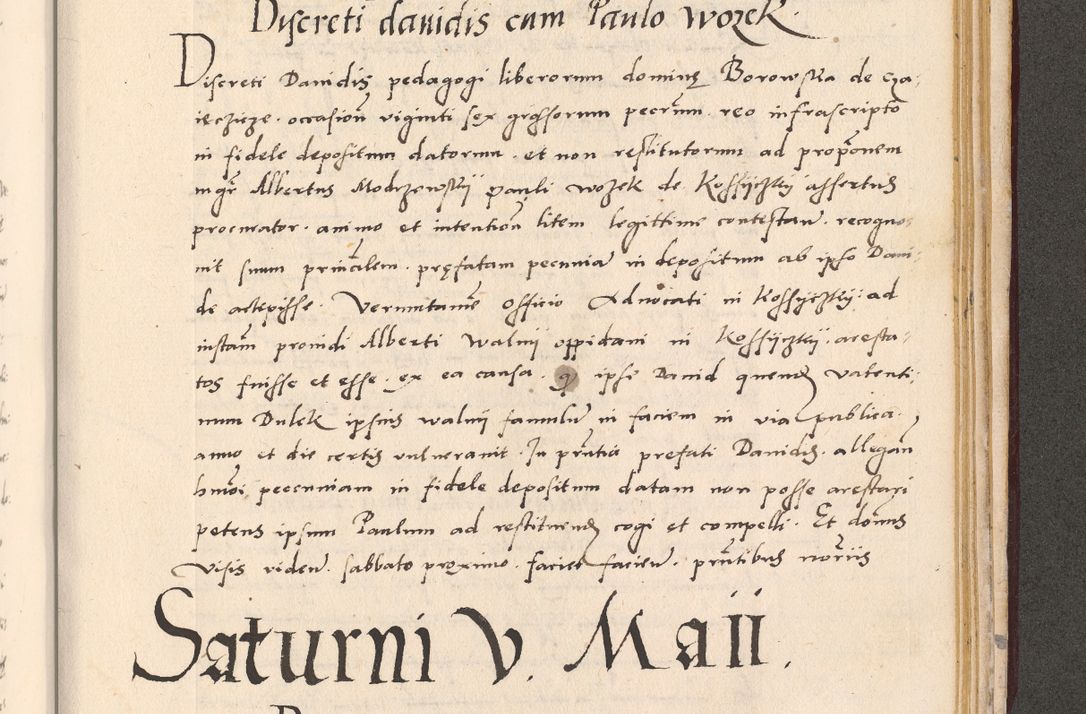 Discreti dauidis cum Paulo wozek.
Discreti Dauidis pedagogi liberorum dominę Borowska de cza,
ieczicze. occasion̄ viginti sex grossorum pecūn. reo infrascripto
in fidele depositum datorum. et non restitutorum ad propōnem
mgr̄i Albertus Modrzewskÿ pauli wozek de Kossÿczkÿ assertus
procurator. animo et intention̄ litem legittime contestan̄. recogno,
uit suum princālem. pręfatam pecunia in depositum ab ipso Daui,
de accepisse. Verumtamē officio Aduocati in Kossÿczkÿ. ad
instan̄ prouidi Alberti Walnÿ oppidani in Kossÿczkÿ. aresta,
tos fuisse et esse. ex ea causa. q ipse Dauid quend Valenti,
num Dulek ipsius walnÿ famulū in faciem in via publica.
anno et die certis vulnerauit. In pn̄tia prefati Dauidis. allegan̄
hmōi peccuniam in fidele depositum datam non posse arestari
petens ipsum Paulum ad restituend cogi et compelli. Et domn̄s
visis viden̄. sabbato proximo. facies facien̄. pn̄tibus nōrÿs
Saturni V. Maii.